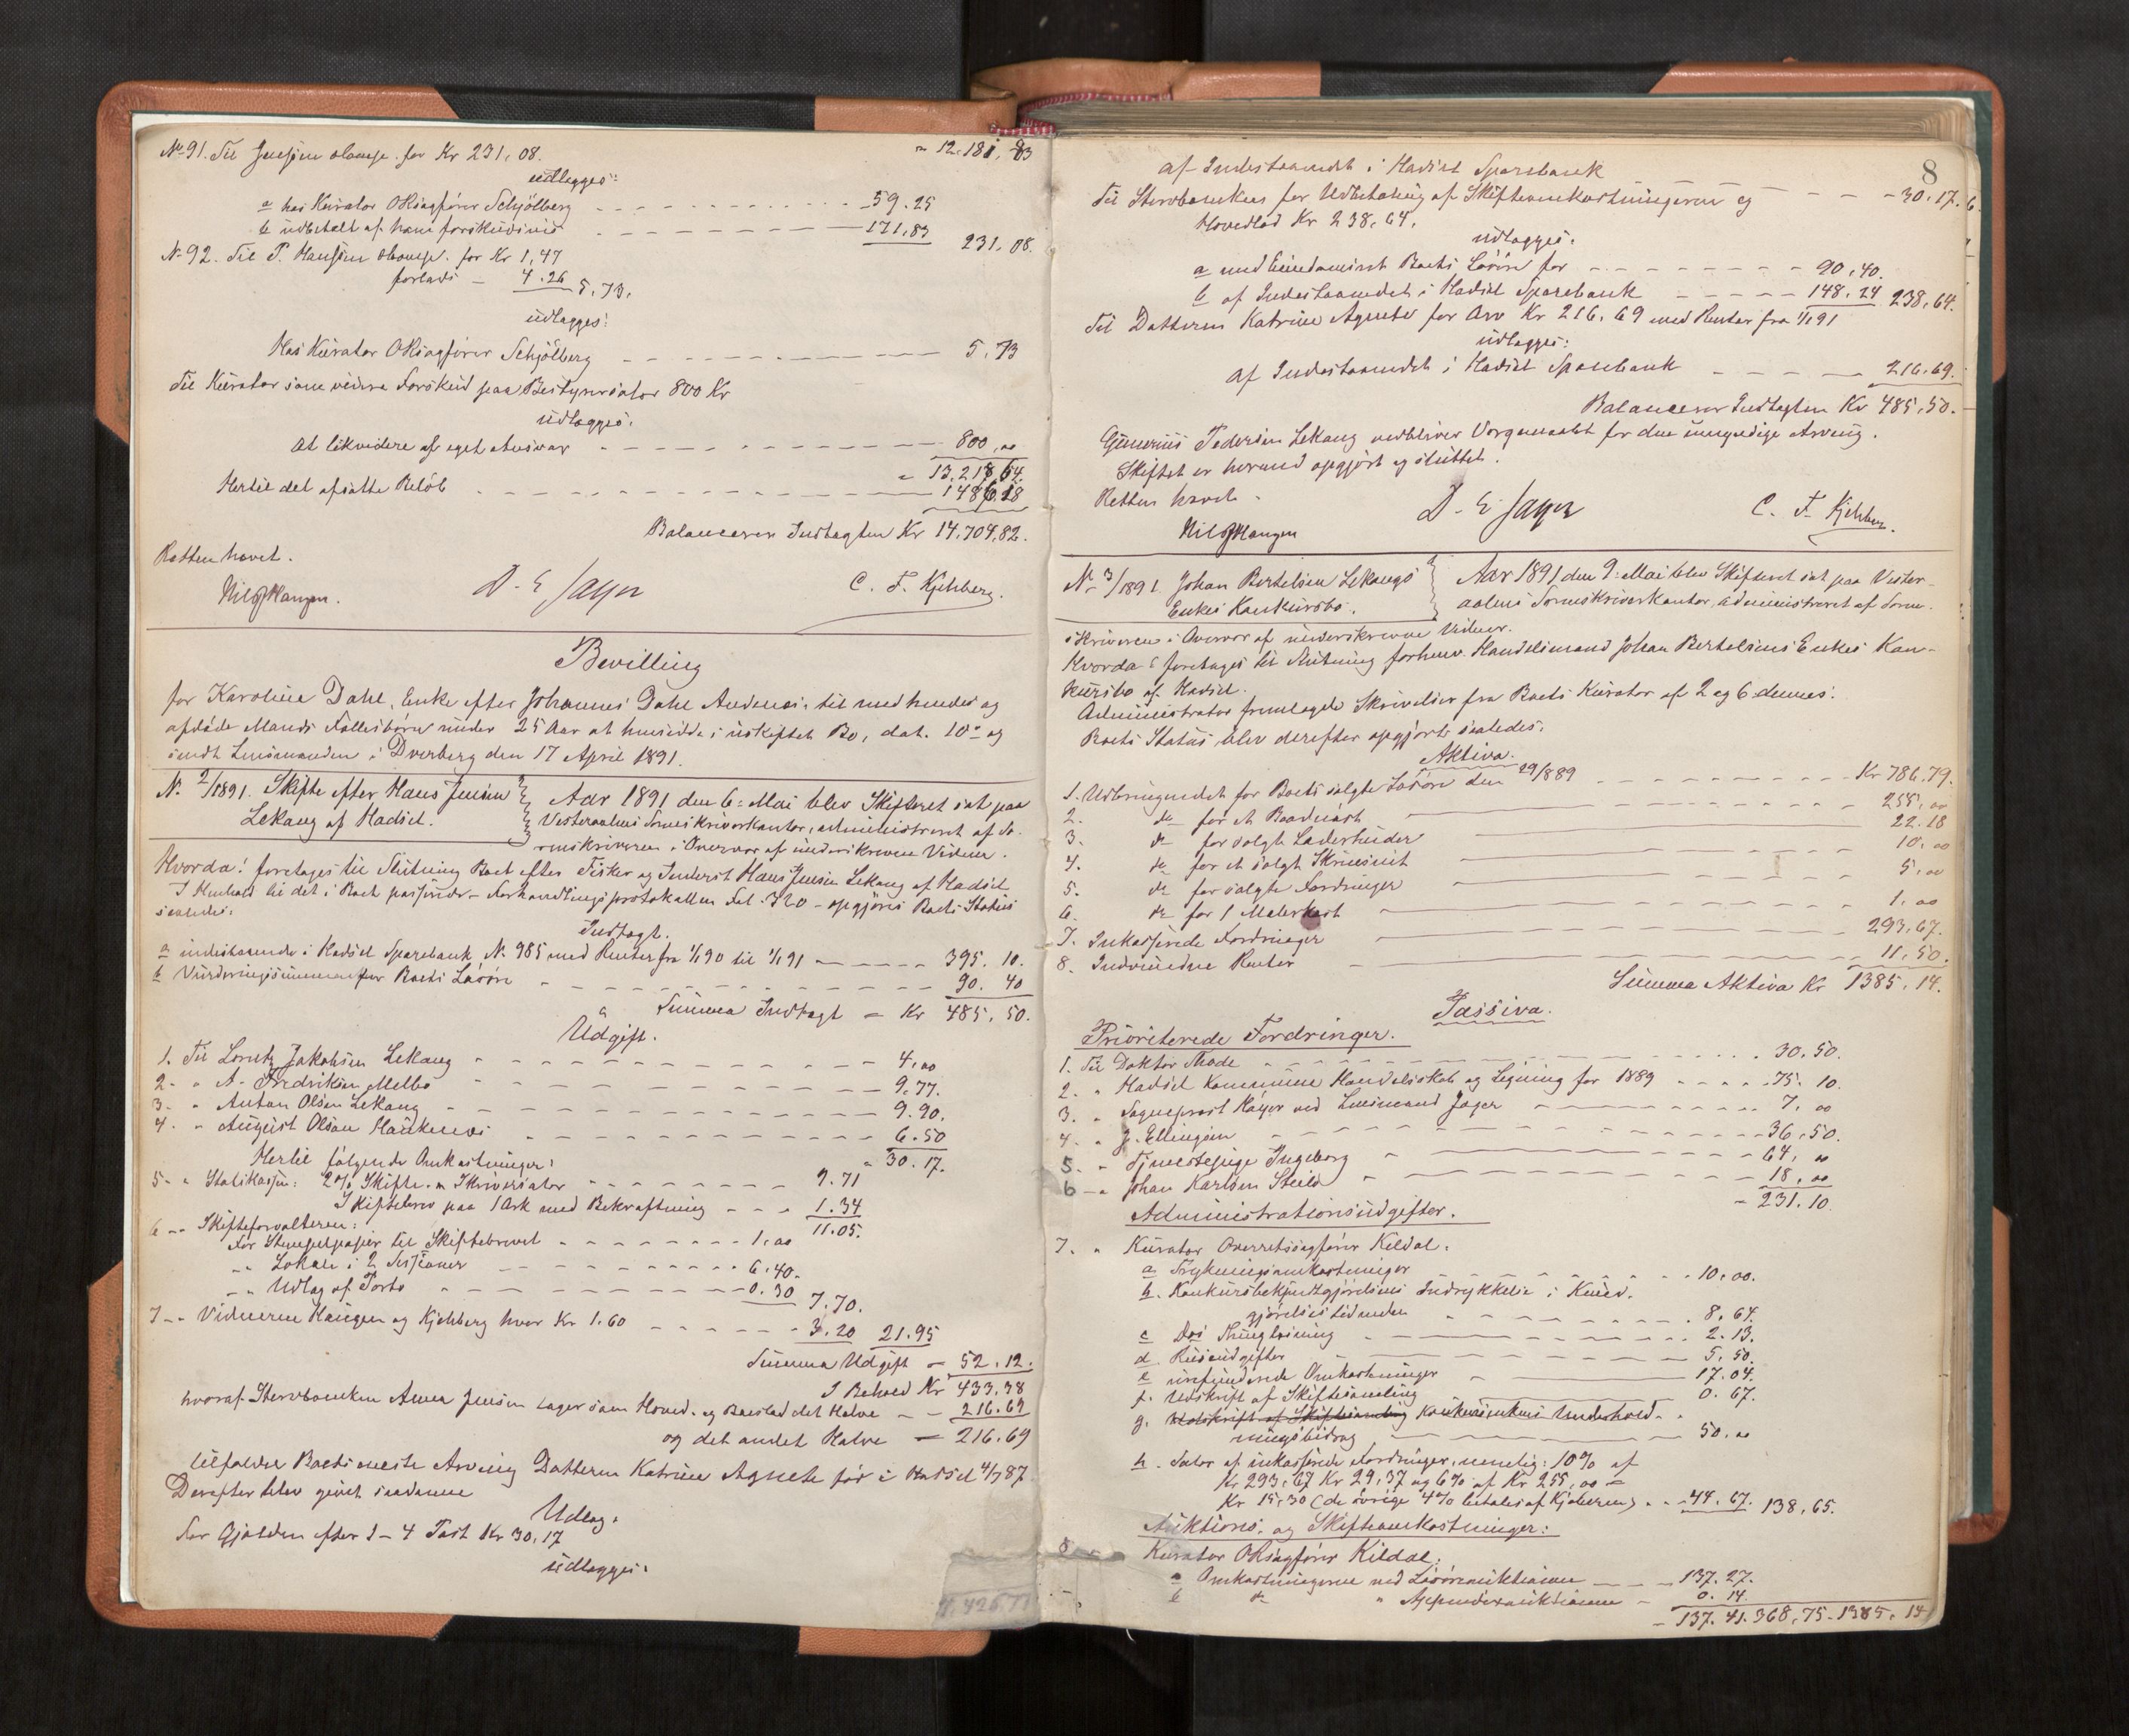 No 91. Til Jensen &amp; Comp. for Kr 231,08. " 12.181,83
udlægges:
a hos Kurator ORsagfører Schjölberg 59.25
b udbetalt af ham forskudsvis 171,83 231,08.
No 92. Til P. Hanssen &amp; Comp. for Kr 1,47
forlods - 4.26 5,73,
udlægges:
Hos Kurator ORsagfører Schjölberg 5,73
Til Kurator som videre Forskud paa Bestyrersalær 800 Kr
udlægges:
At likvidere af eget Ansvar 800,00
" 13,218,64.
Hertil det afsatte Beløb 1486.18
Balancerer Indtægten Kr 14,704,82.
Retten hævet.
Nils Haugen. D. E Jæger C. F. Kjehberg.
Bevilling
for Karoline Dahl, Enke efter Johannes Dahl Andenes til med hendes og
afdøde Mands Fællesbørn under 25 Aar at hensidde i uskiftet Bo, dat. 10de og
sendt Lensmanden i Dverberg den 17 April 1891.
No 2/1891. Skifte efter Hans Jensen
Lekang af Hadsel.
Aar 1891 den 6: Mai blev Skifteret sat paa
Vesteraalens Sorenskriverkontor, administreret af So-
renskriveren i Overvær af underskrevne Vidner.
Hvorda! foretages til Slutning Boet efter Fisker og Inderst Hans Jensen Lekang af Hadsel
I Henhold til det i Boet passerede - Forhandlingsprotokollen Fol. 320 - opgjøres Boets Status
saaledes:
Indtægt.
a indestaaende i Hadsel Sparebank No 985 med Renter fra 1/1 90 til 1/1 91 395.10.
b Vurderingssummen for Boets Løsøre 90.40
Summa Indtægt - Kr 485,50.
Udgift.
1. Til Lorentz Jakobsen Lekang 4,00
2- " A. Fredriksen Melbo 9.77.
3- " Anton Olsen Lekang 9.90.
4. " August Olsen Haukenes 6.50
" 30.17.
Hertil følgende Omkostninger:
5- " Statskassen: 2% Skifte- & Skriversalær 9.71
Skiftebrev paa 1 Ark med Bekræftning 1.34
11.05.
6 -" Skifteforvalteren:
For Stempelpapir til Skiftebrevet 1,00
-" Lokale i 2 Sessioner 6.40.
-" Udlæg af Porto 0.30 7,70.
7 -" Vidnerne Haugen og Kjehberg hver Kr 1.60 3.20 21.95
Summa Udgift - 52.12.
I Behold Kr 433,38
hvoraf Stervboenken Anna Jensen tager som Hoved- og Boeslod det Halve - 216.69
og det andet Halve - 216.69
tilfalder Boets eneste Arving Datteren Katrine Agnete født i Hadsel 4/7 87.
Derefter blev gjort saadanne
Udlæg.
For Gjælden efter 1-4 Post Kr 30,17
udlægges:
8
af Indestaaendet i Hadsel Sparebank 30.17.
Til Stervboenken for Udbetaling af Skifteomkostningerne og
Hovedlod Kr 238,64,
udlægges:
a med Eiendommeret Boets Løsøre for 90,40.
b af Indestaaendet i Hadsel Sparebank 148.24 238,64.
Til Datteren Katrine Agnete for Arv Kr 216,69 med Renter fra 1/1 91
udlægges:
af Indestaaendet i Hadsel Sparebank 216.69.
Balancerer Indtægten Kr 485,50.
Gunerius Pedersen Lekang vedbliver Værgemaalet for den umyndige Arving.
Skiftet er hermed opgjort og sluttet.
Retten hævet.
Nils Haugen D. E Jæger C. F. Kjehberg.
No 3/1891 Johan Bertelsen Lekangs
Enkes Konkursbo.
Aar 1891 den 9: Mai blev Skifteret sat paa Vester-
aalens Sorenskriverkontor, administreret af Soren-
skriveren i Overvær af underskrevne Vidner.
Hvorda! foretages til Slutning forhenv. Handelsmand Johan Bertelsens Enkes Kon-
kursbo af Hadsel.
Administrator fremlagde Skrivelser fra Boets Kurator af 2 og 6 dennes.
Boets Status blev derefter opgjort saaledes:
Aktiva.
1. Udbringendet for Boets solgte Løsøre den 29/8 89 Kr 786,79.
2. do for et Baadnøst 255,00
3. do for solgte Læderhuder 22.18
4. do for et solgt Skrinsnit 10,00
5. do for solgte Fordringer 5,00
6. do for 1 Malerkost 1,00
7. Inkasserede Fordringer 293,67.
8. Indvundne Renter 11,50.
Summa Aktiva Kr 1385,14.
Passiva.
Prioriterede Fordringer.
1. Til Doktor Thode 30.50.
2. " Hadsel Kommune Handelsskat og Ligning for 1889 75.10.
3. " Sogneprest Kayer ved Lensmand Jæger 7,00
4. " J. Ellingsen 36,50.
5. " Tjenestepige Ingeborg 64,00
6 -" Johan Karlsen Steilo 18,00
- 231.10.
Administrationsudgifter.
7. " Kurator Overretssagfører Kildal.
a Trykningsomkostninger 10,00.
b. Konkursbekjendtgjørelsens Indrykkelse i Kund-
gjørelsestidenden 8,64.
c Dos Thinglæsning 2.13.
d. Reiseudgifter 5,50.
e. uspecificerede Omkostninger 17.04.
f. Udskrift af Skiftesamling 0.67.
g. Udskrift af Skiftesamling Konkursenkens Underhold-
ningsbidrag 50.00
h. Salær af inkasserede Fordringer, nemlig: 10% af
Kr 293,67 Kr 29,37 og 6% af Kr 255,00 =
Kr 15,30 (de øvrige 4% betales af Kjøberen) 44.67. 138,65.
Auktions- og Skifteomkostninger:
8 Kurator ORsagfører Kildal:
a Omkostningerne ved Løsøreauktionen 137.27.
b do " Appendixauktionen 0.14
- 137.41. 368,75 - 1385,14